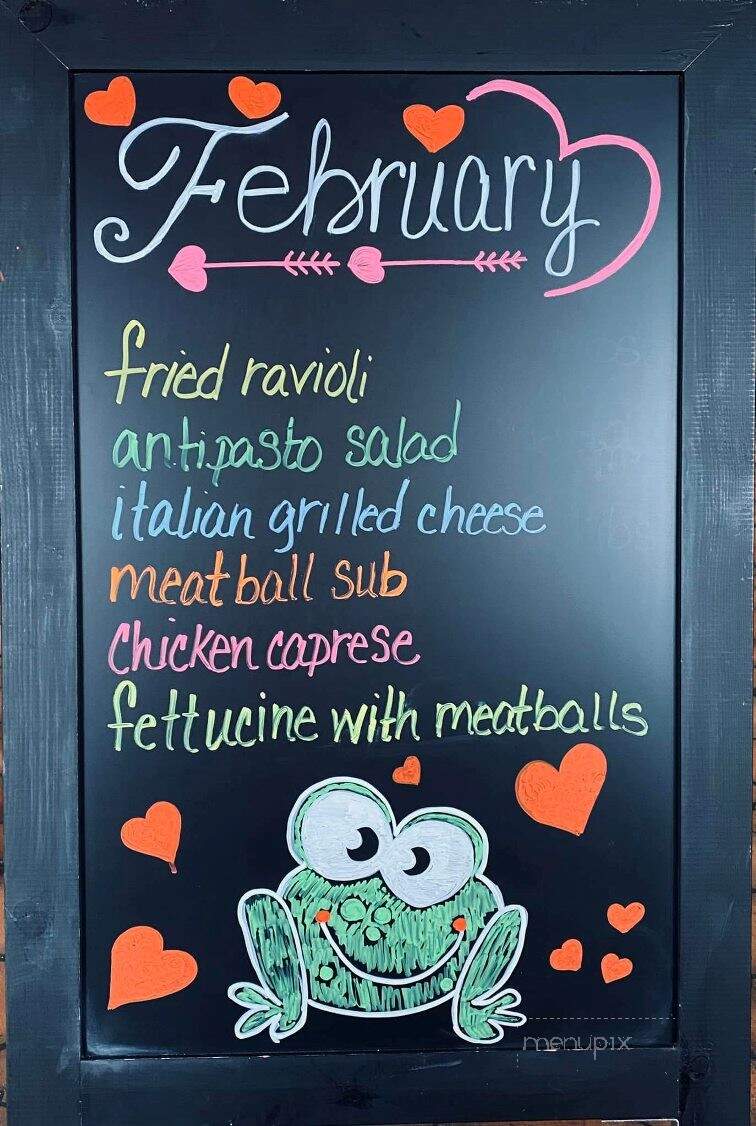 February
fried ravioli
antipasto salad
italian grilled cheese
meatball sub
chicken caprese
fettucine with meatballs
menupix